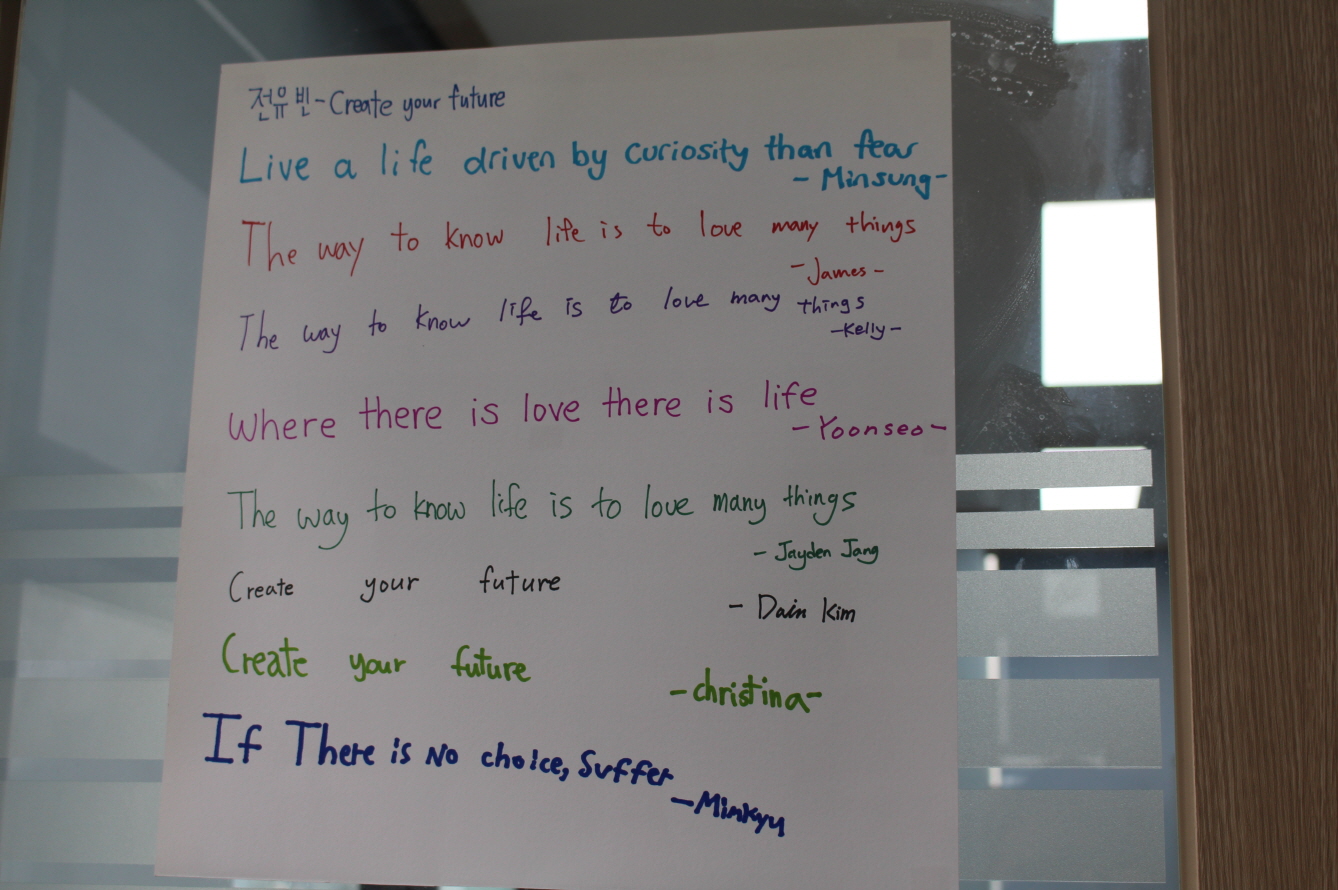 전유빈-Create your future
Live a life driven by curiosity than fear
- Minsung-
The way to know life is to love many things
-James-
The way to know life is to love many things
-Kelly-
Where there is love there is life
-Yoonseo-
The way to know life is to love many things
- Jayden Jang
Create your future
- Dain Kim
Create your future
-christina-
If There is No choice, Suffer
-Minkyu